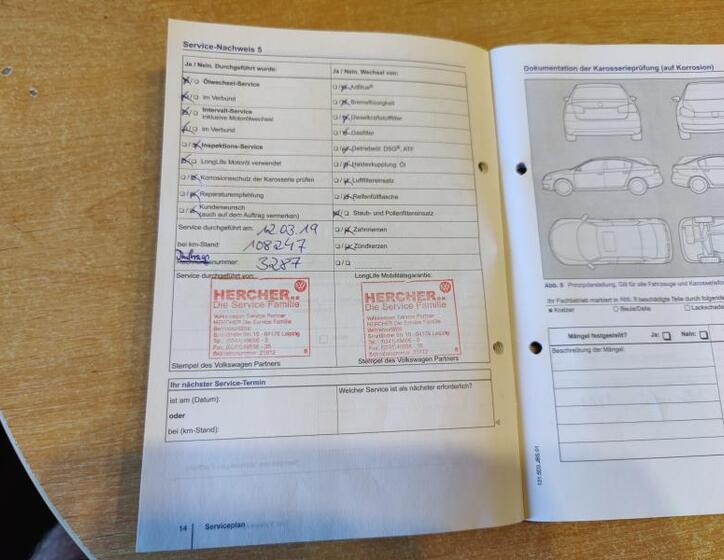 Service-Nachweis 5
Ja / Nein. Durchgeführt wurde:
Ölwechsel-Service
im Verbund
Intervall-Service
inklusive Motorölwechsel
im Verbund
Inspektions-Service
LongLife Motoröl verwendet
Korrosionsschutz der Karosserie prüfen
Reparaturempfehlung
Kundenwunsch
(auch auf dem Auftrag vermerken)
Service durchgeführt am: 12.03.19
bei km-Stand: 108247
Auftragsnummer: 3287
Ja / Nein. Wechsel von:
AdBlue®
Bremsflüssigkeit
Dieselkraftstofffilter
Gasfilter
Getriebeöl: DSG®, ATF
Haldexkupplung: Öl
Luftfiltereinsatz
Reifenfüllflasche
Staub- und Pollenfiltereinsatz
Zahnriemen
Zündkerzen
Service durchgeführt von:
HERCHER
Die Service Familie
Volkswagen Service Partner
HERCHER Die Service Familie
Stempel des Volkswagen Partners
LongLife Mobilitätsgarantie:
HERCHER
Die Service Familie
Volkswagen Service Partner
HERCHER Die Service Familie
Stempel des Volkswagen Partners
Ihr nächster Service-Termin
ist am (Datum):
oder
bei (km-Stand):
Welcher Service ist als nächster erforderlich?
14 Serviceplan
Dokumentation der Karosserieprüfung (auf Korrosion)
Abb. 5 Prinzipdarstellung. Gilt für alle Fahrzeuge und
Ihr Fachbetrieb markiert in Abb. 5 beschädigte Teile durch
Kratzer Beule/Delle
Mängel festgestellt? Ja: Nein:
Beschreibung der Mängel: